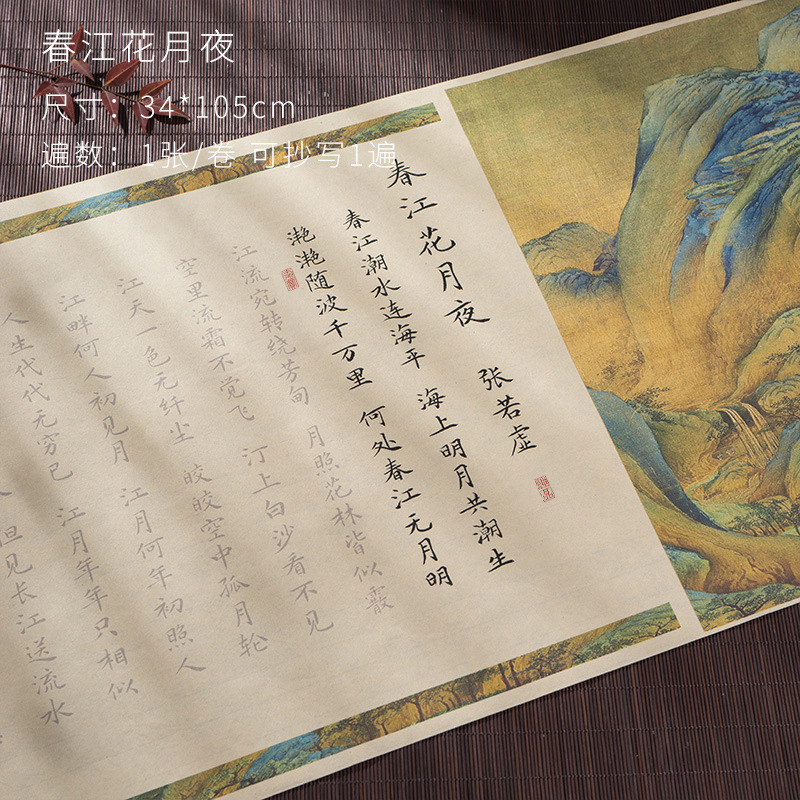 春江花月夜
尺寸：34*105cm
遍数：1张/卷 可抄写1遍
春江花月夜 张若虚
春江潮水连海平 海上明月共潮生
滟滟随波千万里 何处春江无月明
江流宛转绕芳甸 月照花林皆似霰
空里流霜不觉飞 汀上白沙看不见
江天一色无纤尘 皎皎空中孤月轮
江畔何人初见月 江月何年初照人
人生代代无穷已 江月年年只相似
人 但见长江送流水